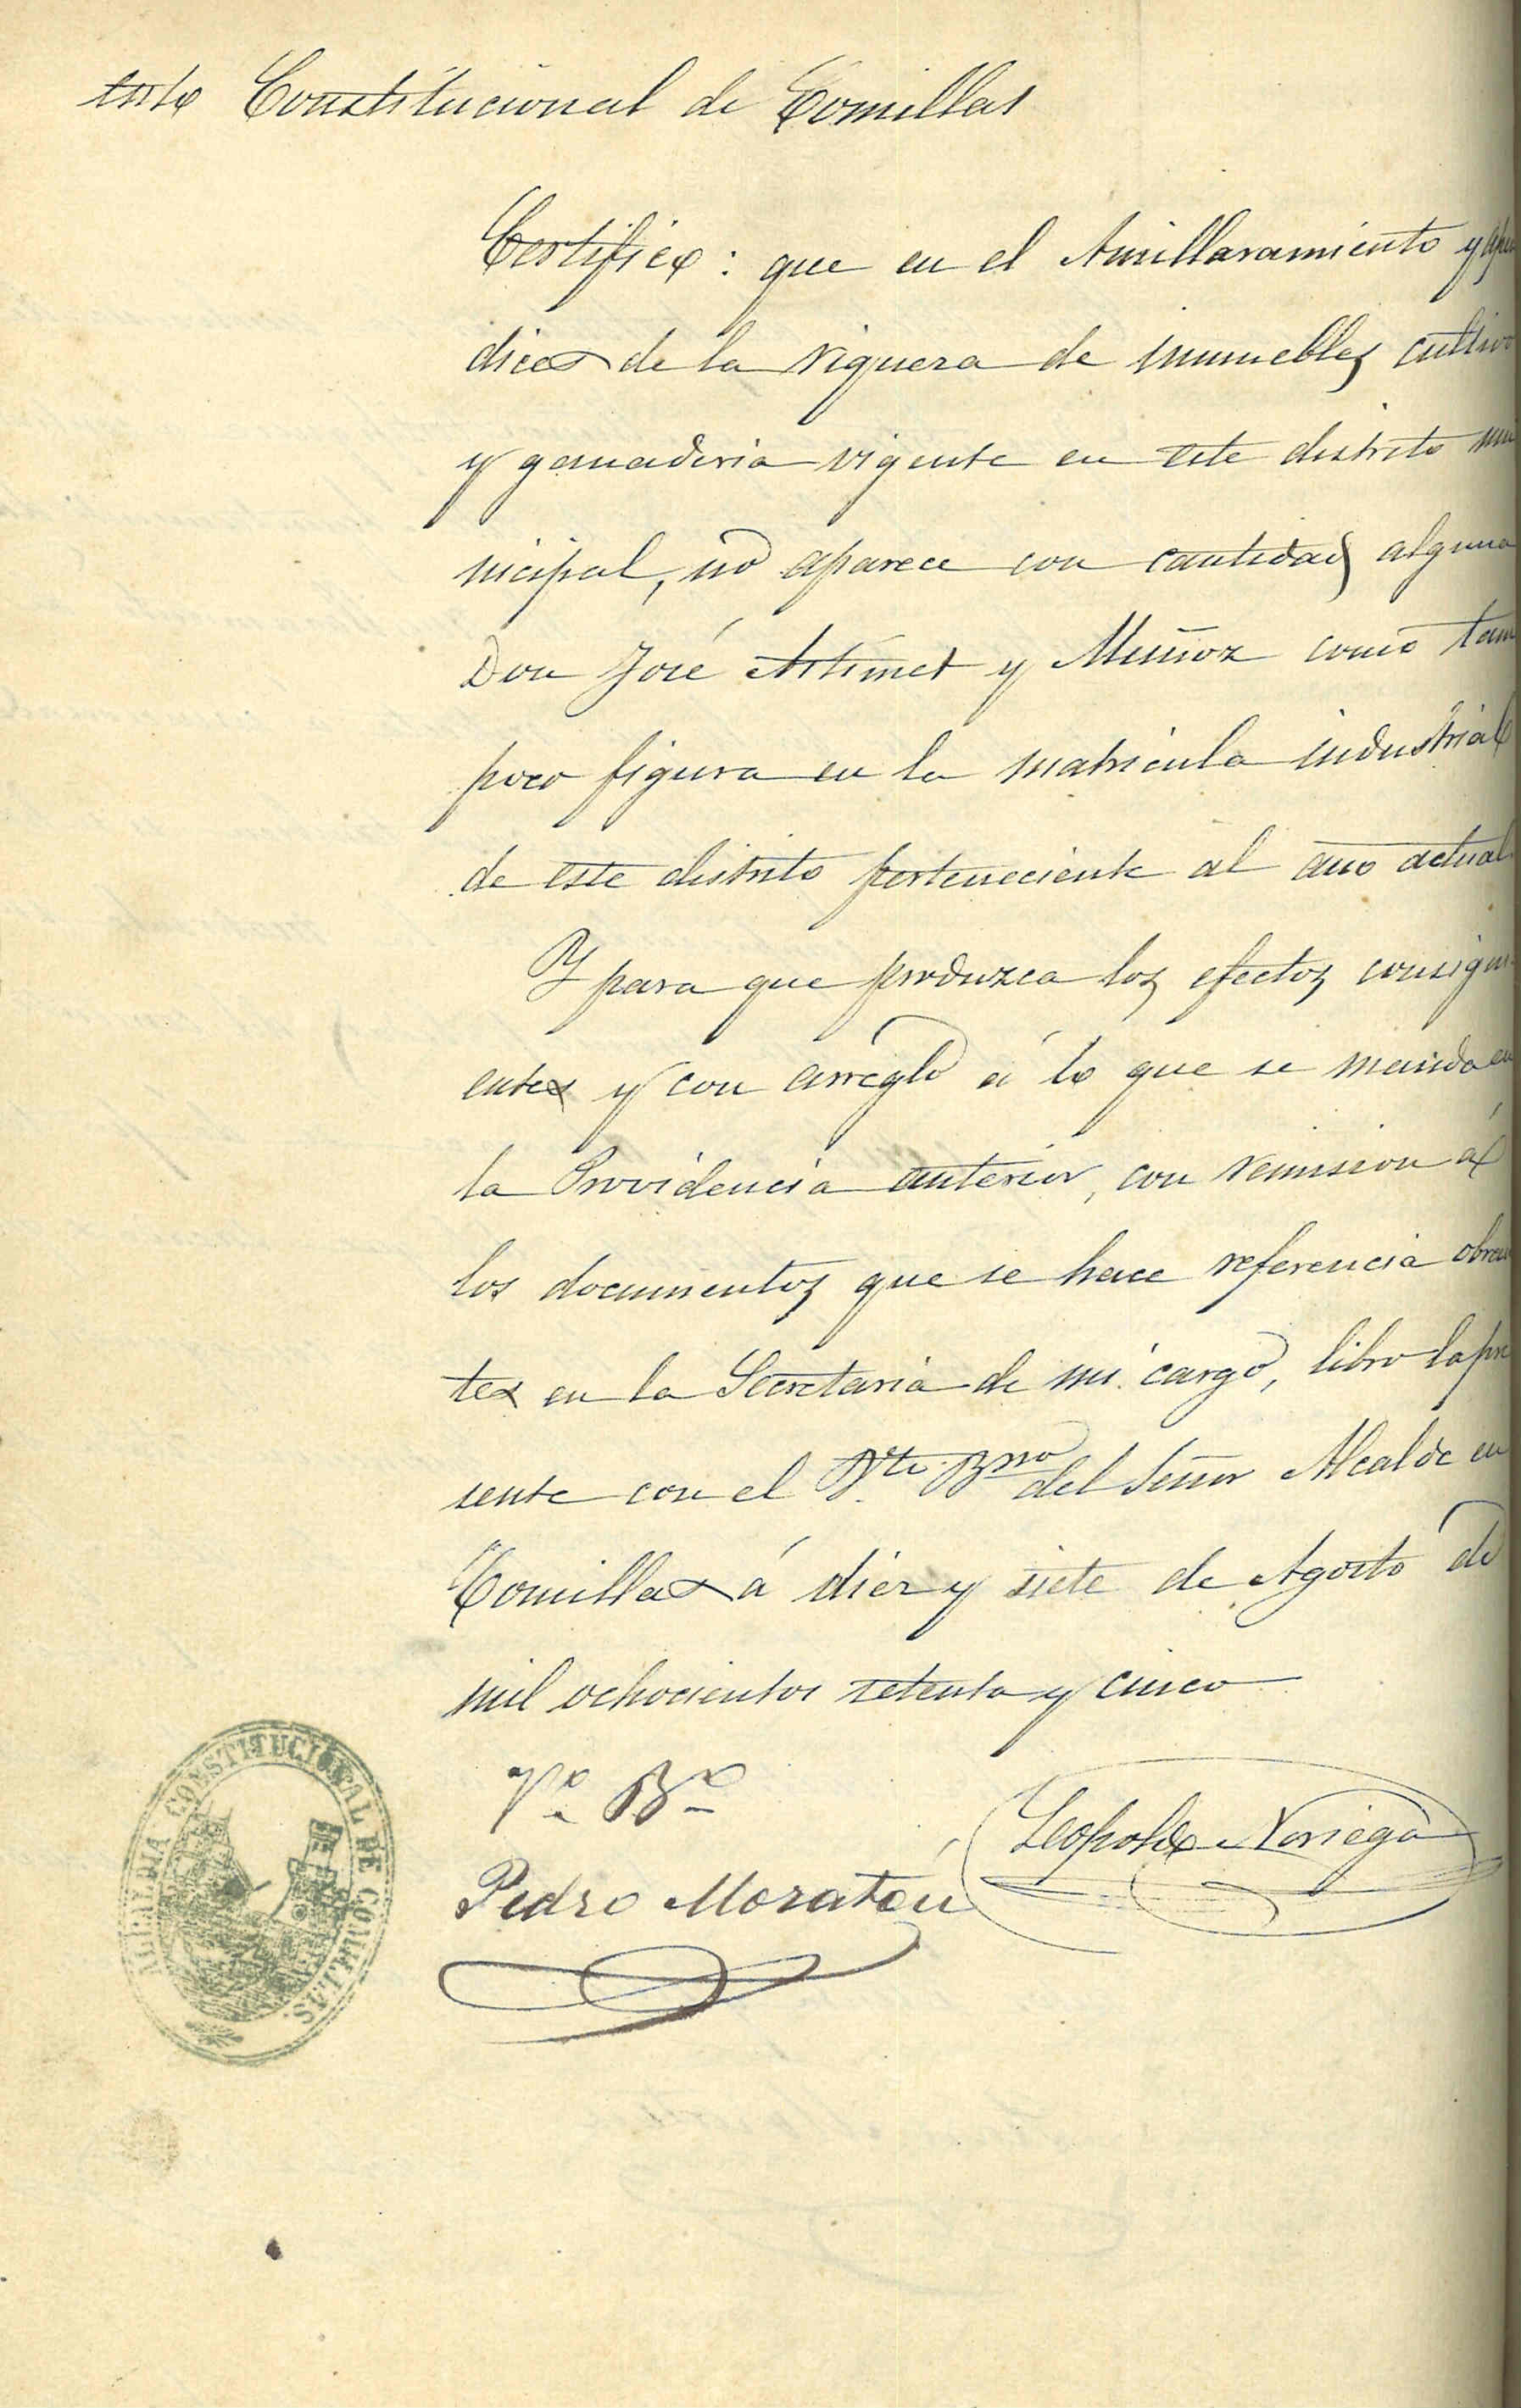 ento Constitucional de Comillas
Certifico: que en el Amillaramiento y apen
dices de la riqueza de inmuebles cultivo
y ganaderia vigente en este distrito mu
nicipal, no aparece con cantidad alguna
Don José y Muñoz como tam
poco figura en la matricula industrial
de este distrito perteneciente al año actual
Y para que produzca los efectos consigui
entes y con arreglo á lo que se manda en
la Providencia anterior, con remision á
los documentos que se hace referencia obran
tes en la Secretaria de mi cargo, libro la pre
sente con el Vto. Bno del Señor Alcalde en
Comillas á diez y siete de Agosto de
mil ochocientos setenta y cinco
Vº Bº
Leopoldo Noriega
Pedro Moratón
ALCALDIA CONSTITUCIONAL DE COMILLAS.